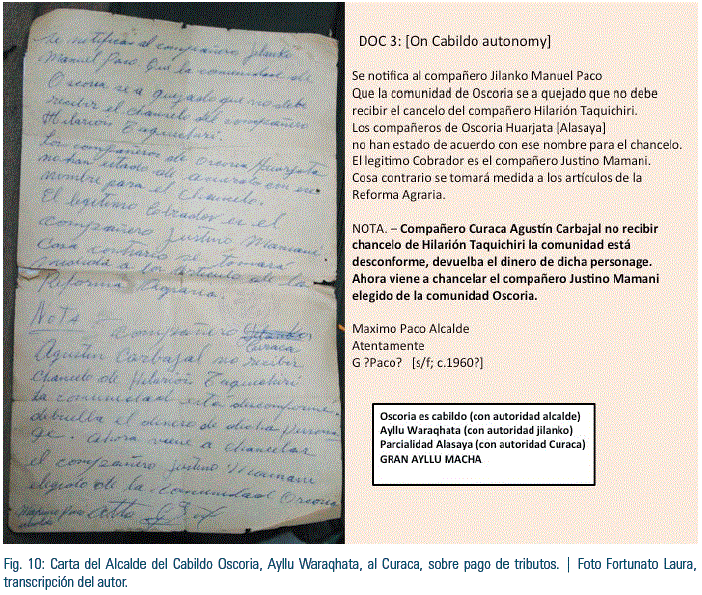 Se notifica al compañero Jilanko
Manuel Paco Que la comunidad de
Oscoria se a quejado que no debe
recibir el chancelo del compañero
Hilarión Taquichiri.
Los compañeros de Oscoria Huarjata
no han estado de acuerdo con ese
nombre para el chancelo.
El legitimo Cobrador es el
compañero Justino Mamani.
Cosa contrario se tomará
medida a los artículos de la
Reforma Agraria.
NOTA Compañero Jilanko
Curaca
Agustin Carbajal no recibir
chancelo de Hilarión Taquichiri
la comunidad está desconforme,
debuelba el dinero de dicha persona
ge. Ahora viene a chancelar
el compañero Justino Mamani
elegido de la comunidad Oscoria
Maximo Paco Atte
alcalde
DOC 3: [On Cabildo autonomy]
Se notifica al compañero Jilanko Manuel Paco
Que la comunidad de Oscoria se a quejado que no debe
recibir el cancelo del compañero Hilarión Taquichiri.
Los compañeros de Oscoria Huarjata [Alasaya]
no han estado de acuerdo con ese nombre para el chancelo.
El legitimo Cobrador es el compañero Justino Mamani.
Cosa contrario se tomará medida a los artículos de la
Reforma Agraria.
NOTA. – Compañero Curaca Agustín Carbajal no recibir
chancelo de Hilarión Taquichiri la comunidad está
desconforme, devuelba el dinero de dicha personage.
Ahora viene a chancelar el compañero Justino Mamani
elegido de la comunidad Oscoria.
Maximo Paco Alcalde
Atentamente
G ?Paco? [s/f; c.1960?]
Oscoria es cabildo (con autoridad alcalde)
Ayllu Waraqhata (con autoridad jilanko)
Parcialidad Alasaya (con autoridad Curaca)
GRAN AYLLU MACHA
Fig. 10: Carta del Alcalde del Cabildo Oscoria, Ayllu Waraqhata, al Curaca, sobre pago de tributos. | Foto Fortunato Laura,
transcripción del autor.